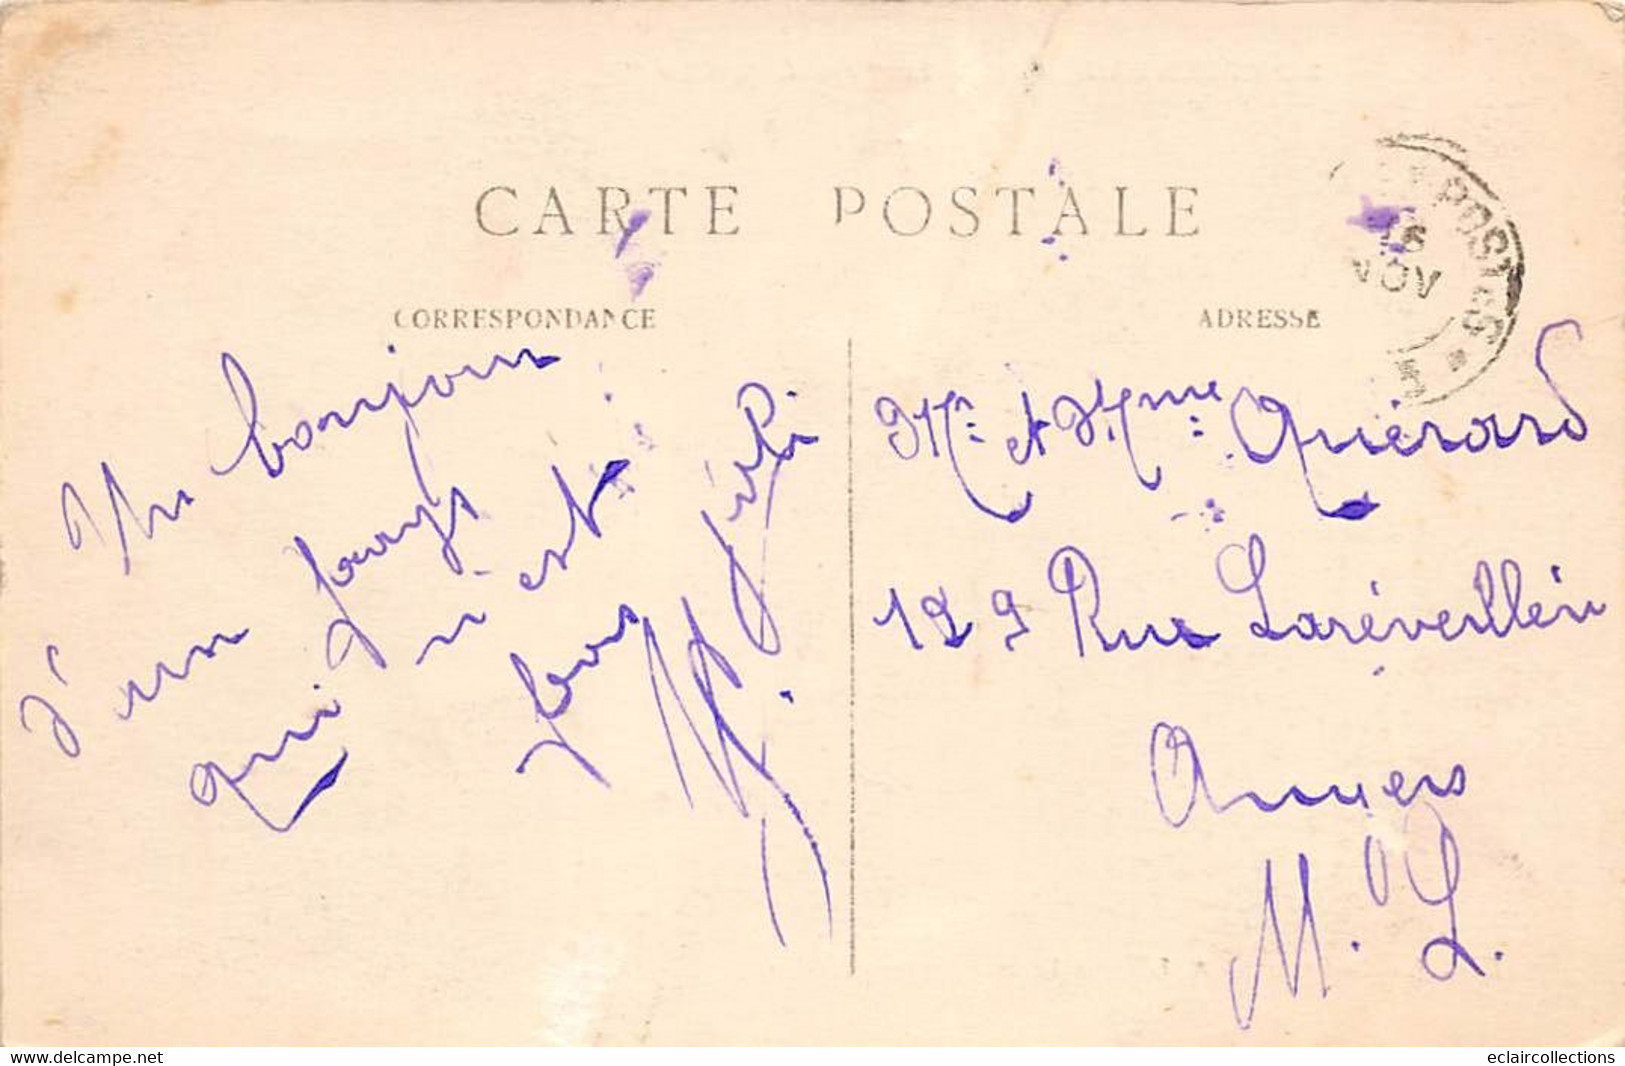 CARTE POSTALE
CORRESPONDANCE
ADRESSE
POSTES
16
NOV
Un bonjour
d'un pays
qui n'est
pas joli
Mr et Mme Quérard
129 Rue Laréveillère
Angers
M. L.
www.delcampe.net
eclaircollections